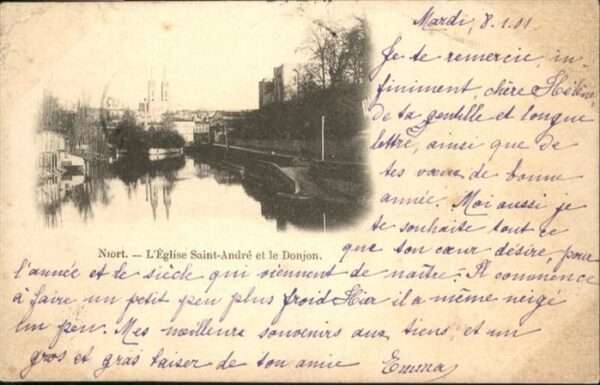 Mardi, 8.1.01
Je te remercie, in-
finiment, chère Hélène
de ta gentille et longue
lettre, ainsi que de
tes vœux de bonne
année. Moi aussi je
te souhaite tout ce
que ton cœur désire, pour
Niort. — L'Église Saint-André et le Donjon.
l'année et le siècle qui viennent de naître. Il commence
à faire un petit peu plus froid Hier il a même neigé
un peu. Mes meilleurs souvenirs aux tiens, et un
gros et gras baiser de ton amie Emma